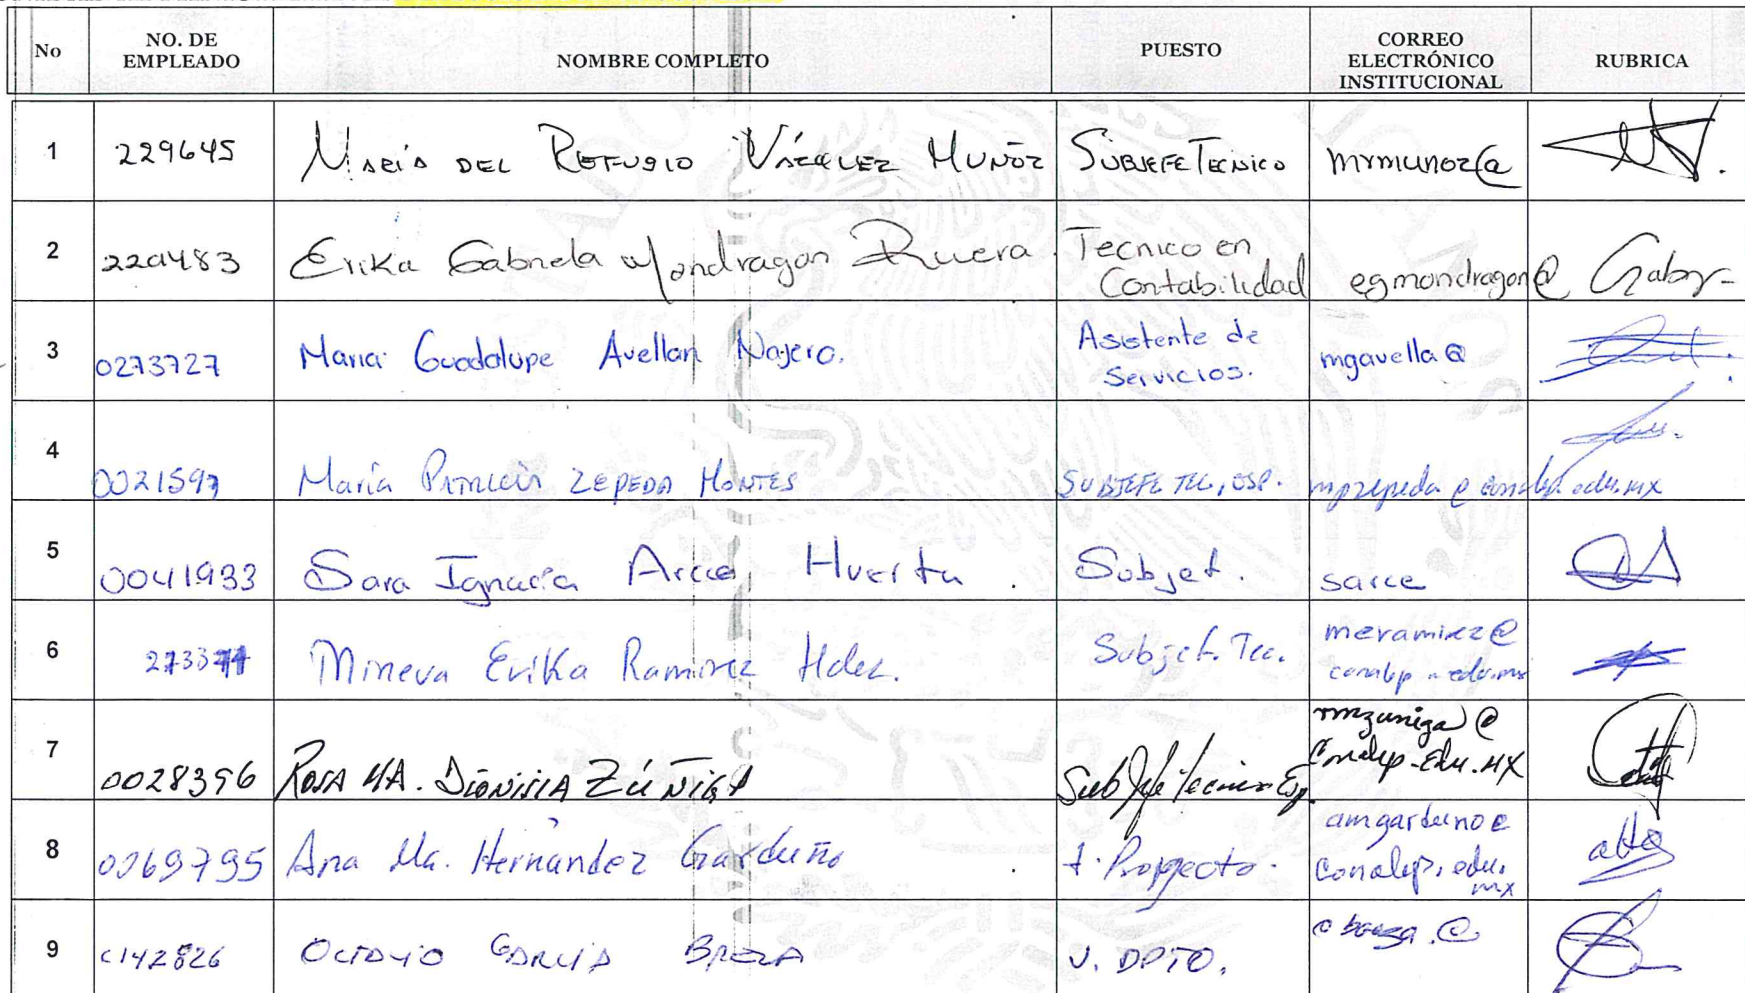 No
NO. DE
EMPLEADO
NOMBRE COMPLETO
PUESTO
CORREO
ELECTRÓNICO
INSTITUCIONAL
RUBRICA
1 229645 María del Refugio Vázquez Muñoz Subjefe Técnico mrmunoz@
2 229483 Erika Gabriela Mondragon Rivera. Tecnico en
Contabilidad egmondragon@ Gaby
3 0273727 Maria Guadalupe Avellan Najero. Asistente de
Servicios. mgavella@
4 0021597 María Patricia ZEPEDA MONTES SUBJEFE TEC, ESP. mpzepeda@conalep.edu.mx
5 0041933 Sara Ignacia Arce Huerta. Subjef. sarce
6 Mineva Erika Ramirez Hdez. Subjef. Tec. meramirez@
conalep.edu.mx
7 0028396 ROSA MA. DIONISIA ZÚÑIGA Sub Jefe Tecnico Esp. rmzuniga@
Conalep.Edu.MX
8 0069795 Ana Ma. Hernández Garduño J. Proyecto. amgarduno@
conalep.edu.
mx
9 0142826 OCTAVIO GARCIA BAEZA J. DPTO.